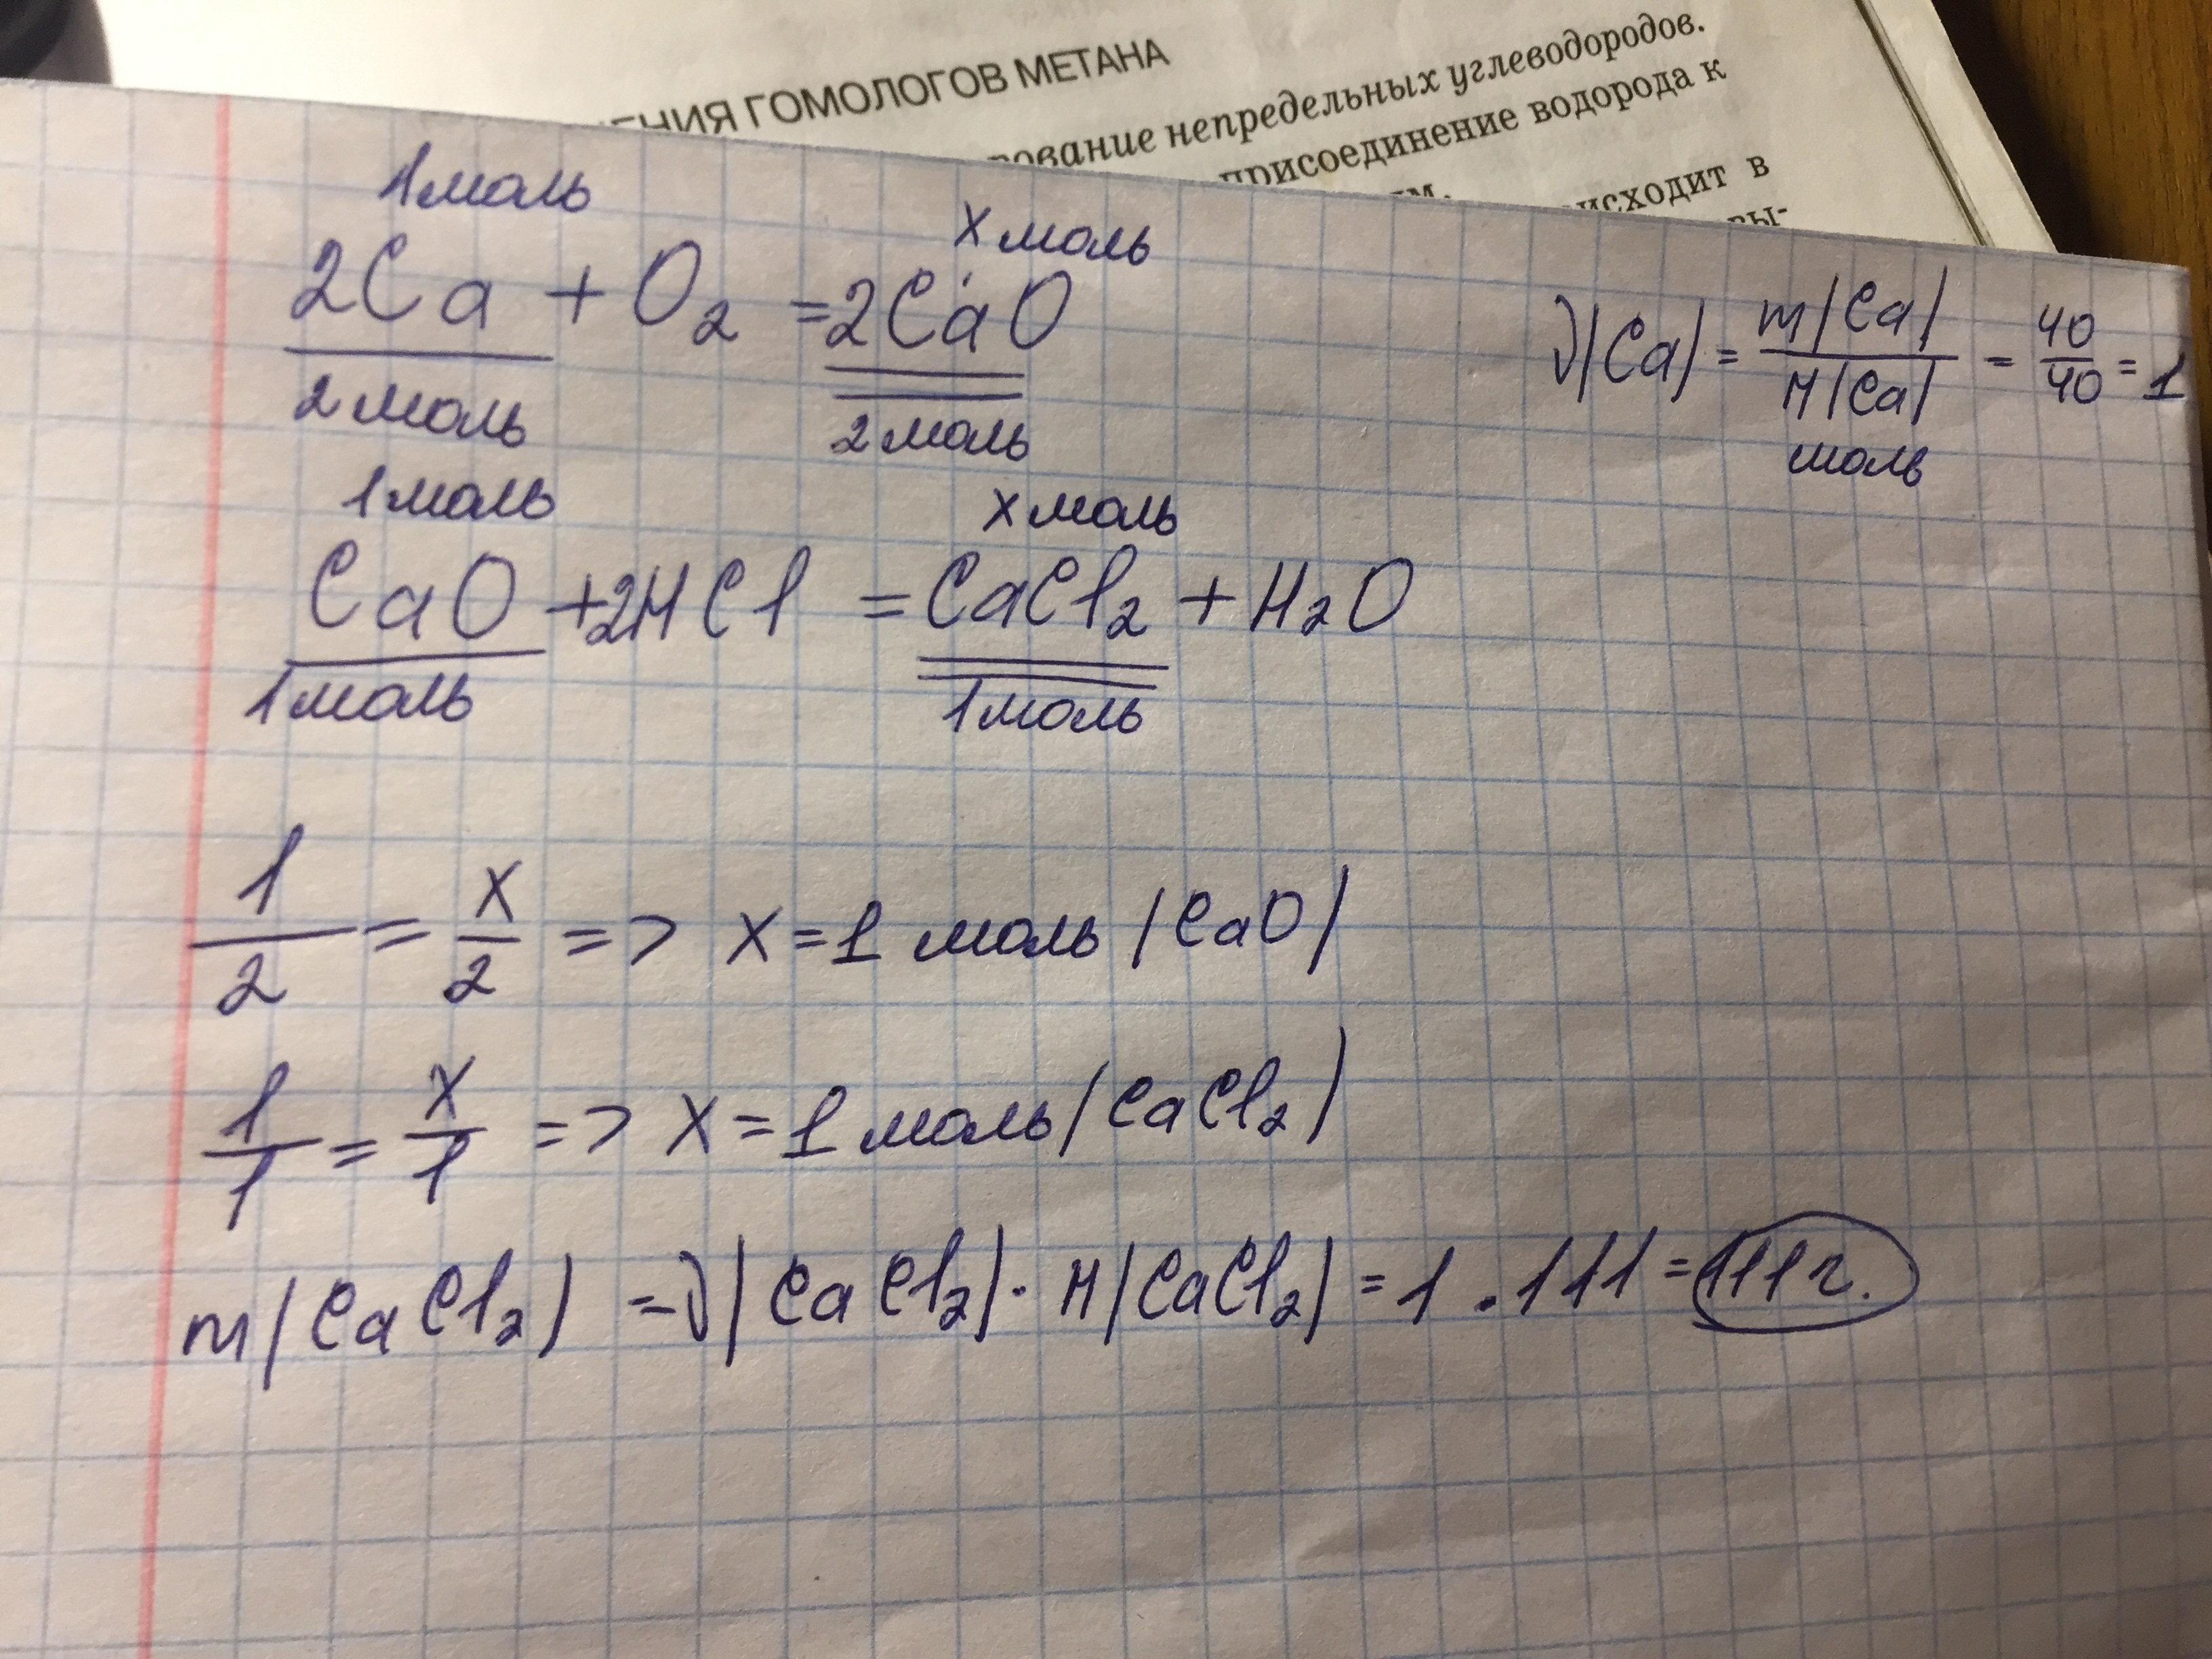 ЕНИЯ ГОМОЛОГОВ МЕТАНА
рование непредельных углеводородов.
присоединение водорода к
исходит в
вы-
1моль
x моль
2Ca + O₂ = 2CaO
2 моль 2 моль
ν|Ca| = m|Ca| / M|Ca| = 40/40 = 1
моль
1 моль x моль
CaO + 2HCl = CaCl₂ + H₂O
1 моль 1 моль
1/2 = x/2 => x = 1 моль |CaO|
1/1 = x/1 => x = 1 моль |CaCl₂|
m|CaCl₂| = ν|CaCl₂| · M|CaCl₂| = 1 · 111 = 111 г.